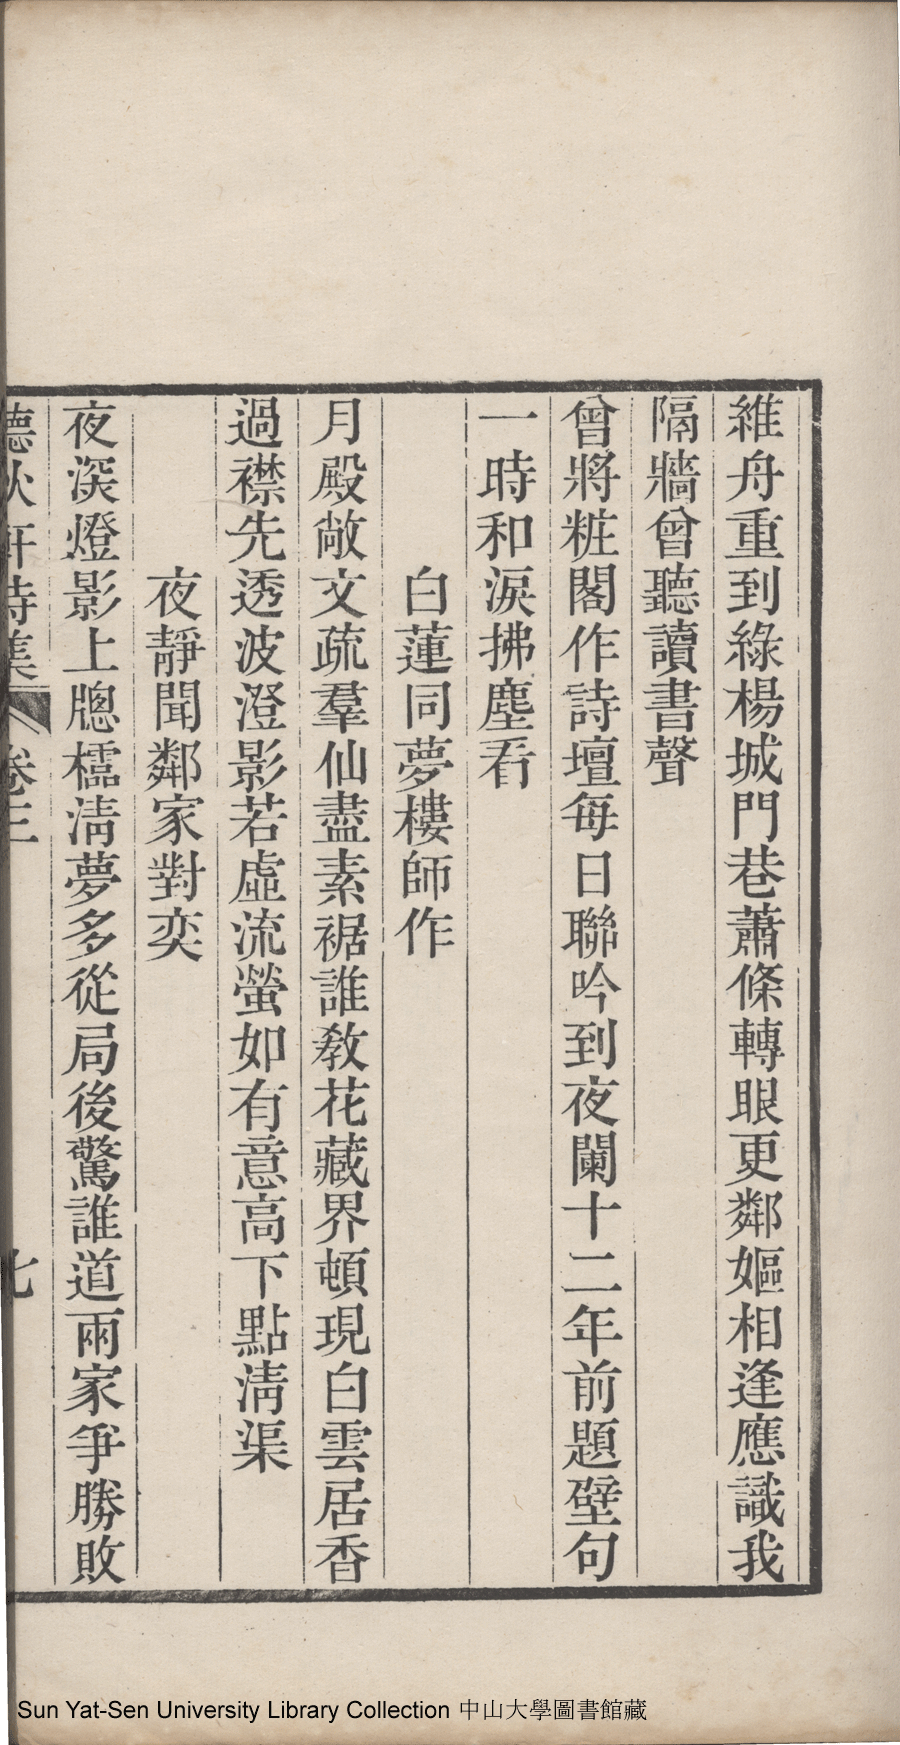 維舟重到綠楊城門巷蕭條轉眼更鄰嫗相逢應識我
隔牆曾聽讀書聲
曾將粧閣作詩壇每日聯吟到夜闌十二年前題壁句
一時和淚拂塵看
白蓮同夢樓師作
月殿敞文疏羣仙盡素裾誰敎花藏界頓現白雲居香
過襟先透波澄影若虛流螢如有意高下點淸渠
夜靜聞鄰家對奕
夜深燈影上牕櫺淸夢多從局後驚誰道兩家爭勝敗
聽秋軒詩集
卷三
七
Sun Yat-Sen University Library Collection 中山大學圖書館藏